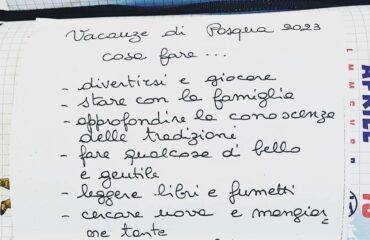 Vacanze di Pasqua 2023
cosa fare...
- divertirsi e giocare
- stare con la famiglia
- approfondire la conoscenza
delle tradizioni
- fare qualcosa di bello
e gentile
- leggere libri e fumetti
- cercare uova e mangiar
ne tante
APRILE
L M M G V